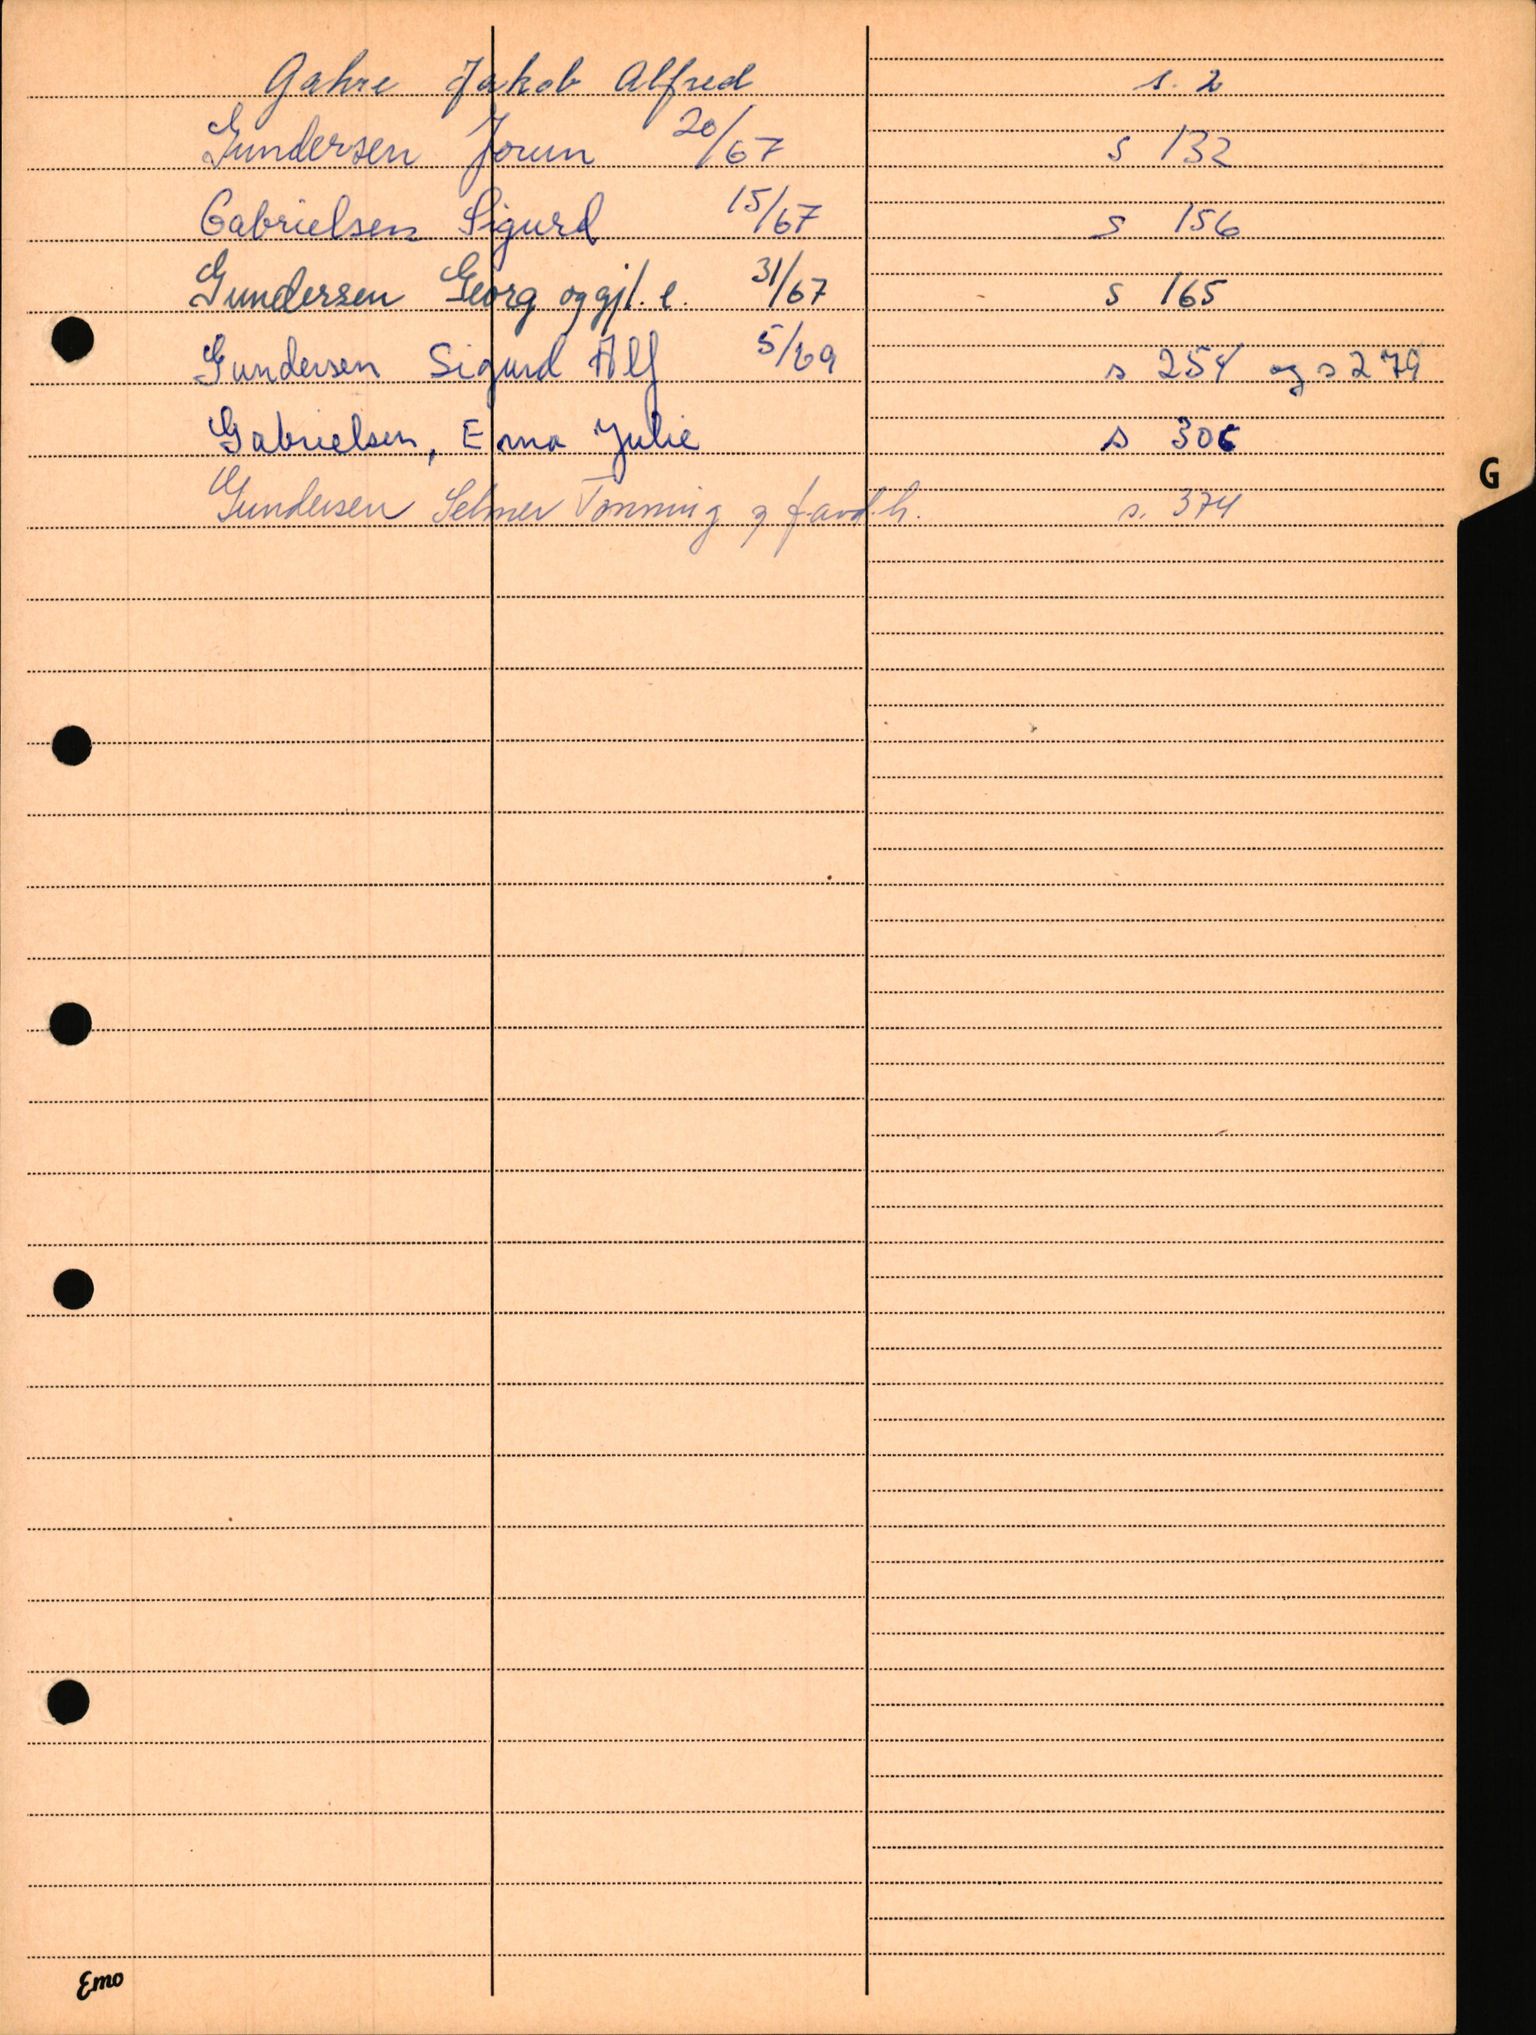 Gahre Jakob Alfred s. 2
Gundersen Jorun 20/67 s 132
Gabrielsen Sigurd 15/67 s 156
Gundersen Georg og gjl. e. 31/67 s 165
Gundersen Sigurd Alf 5/69 s 254 og s 279
Gabrielsen, Erna Julie s 306
G
Gundersen Selmer Tønning g f. avd. h. s. 374
Emo